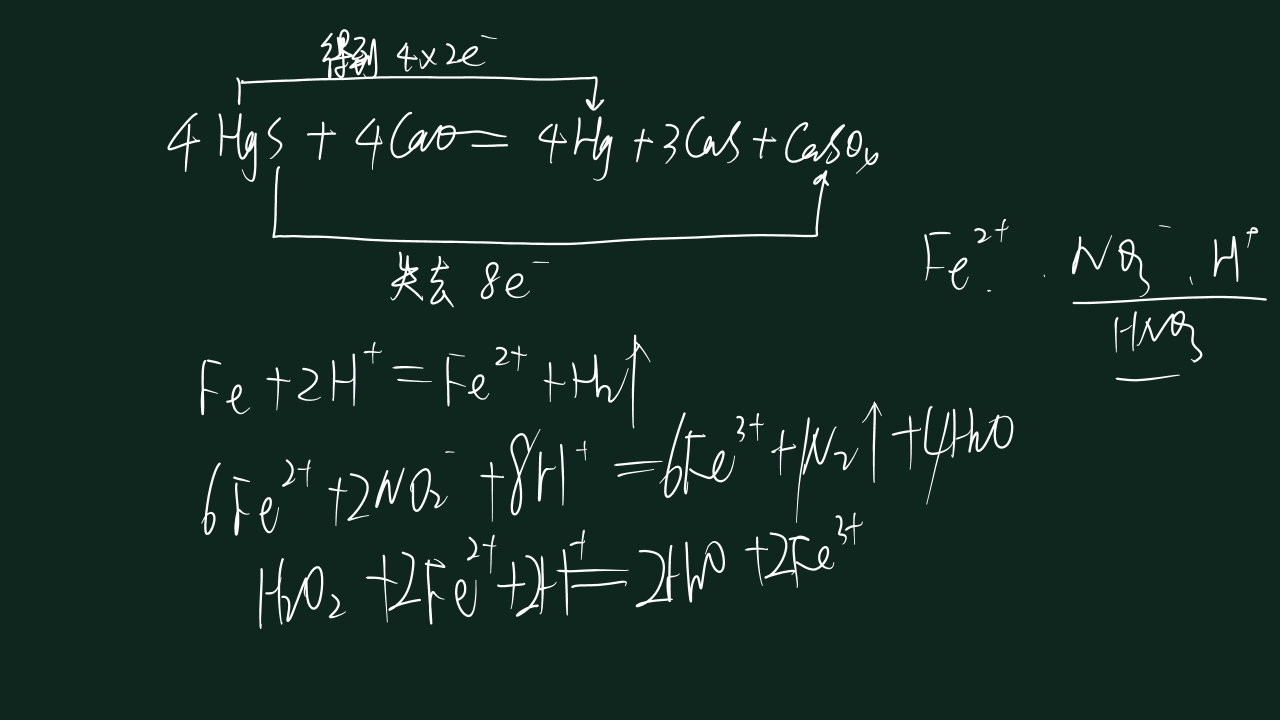 得到 4×2e⁻
4HgS + 4CaO = 4Hg + 3CaS + CaSO₄
失去 8e⁻
Fe²⁺ . NO₃⁻ 、 H⁺
HNO₃
Fe + 2H⁺ = Fe²⁺ + H₂↑
6Fe²⁺ + 2NO₂⁻ + 8H⁺ = 6Fe³⁺ + N₂↑ + 4H₂O
H₂O₂ + 2Fe²⁺ + 2H⁺ = 2H₂O + 2Fe³⁺